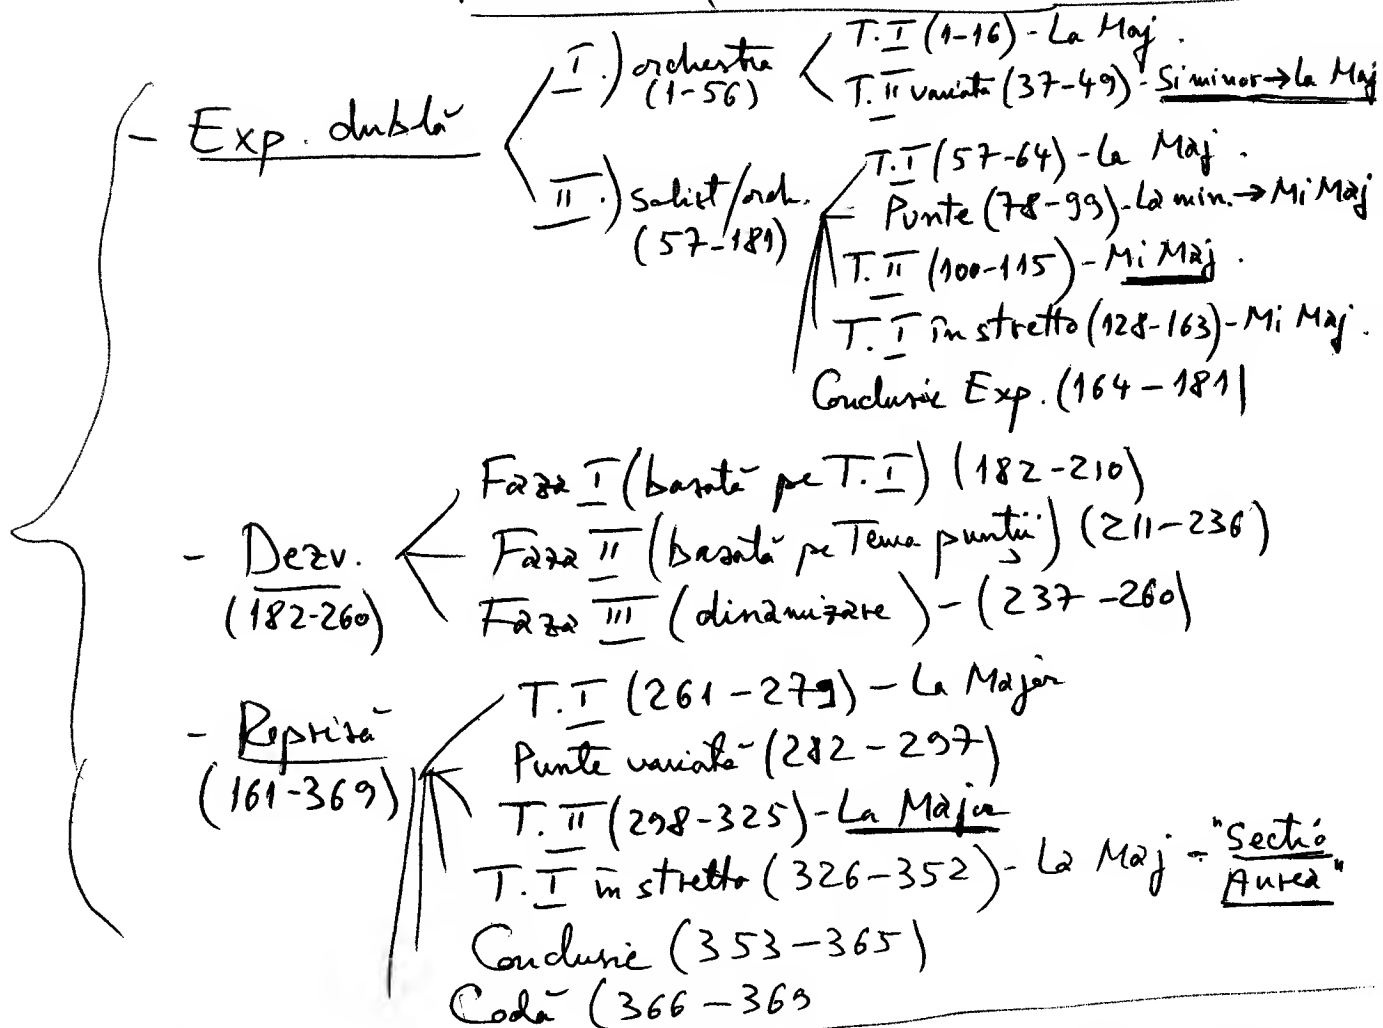 I.) orchestra
(1-56)
T.I (1-16) - La Maj.
T.II variată (37-49) - Si minor → La Maj
- Exp. dublă
II.) Solist/orch.
(57-181)
T.I (57-64) - La Maj.
Punte (78-99) - La min. → Mi Maj
T.II (100-115) - Mi Maj.
T.I în stretto (128-163) - Mi Maj.
Concluzie Exp. (164-181)
- Dezv.
(182-260)
Faza I (bazată pe T.I) (182-210)
Faza II (bazată pe Tema punții) (211-236)
Faza III (dinamizare) - (237-260)
- Repriză
(161-369)
T.I (261-279) - La Major
Punte variată (282-297)
T.II (298-325) - La Major
T.I în stretto (326-352) - La Maj - "Sectio
Aurea"
Concluzie (353-365)
Codă (366-369